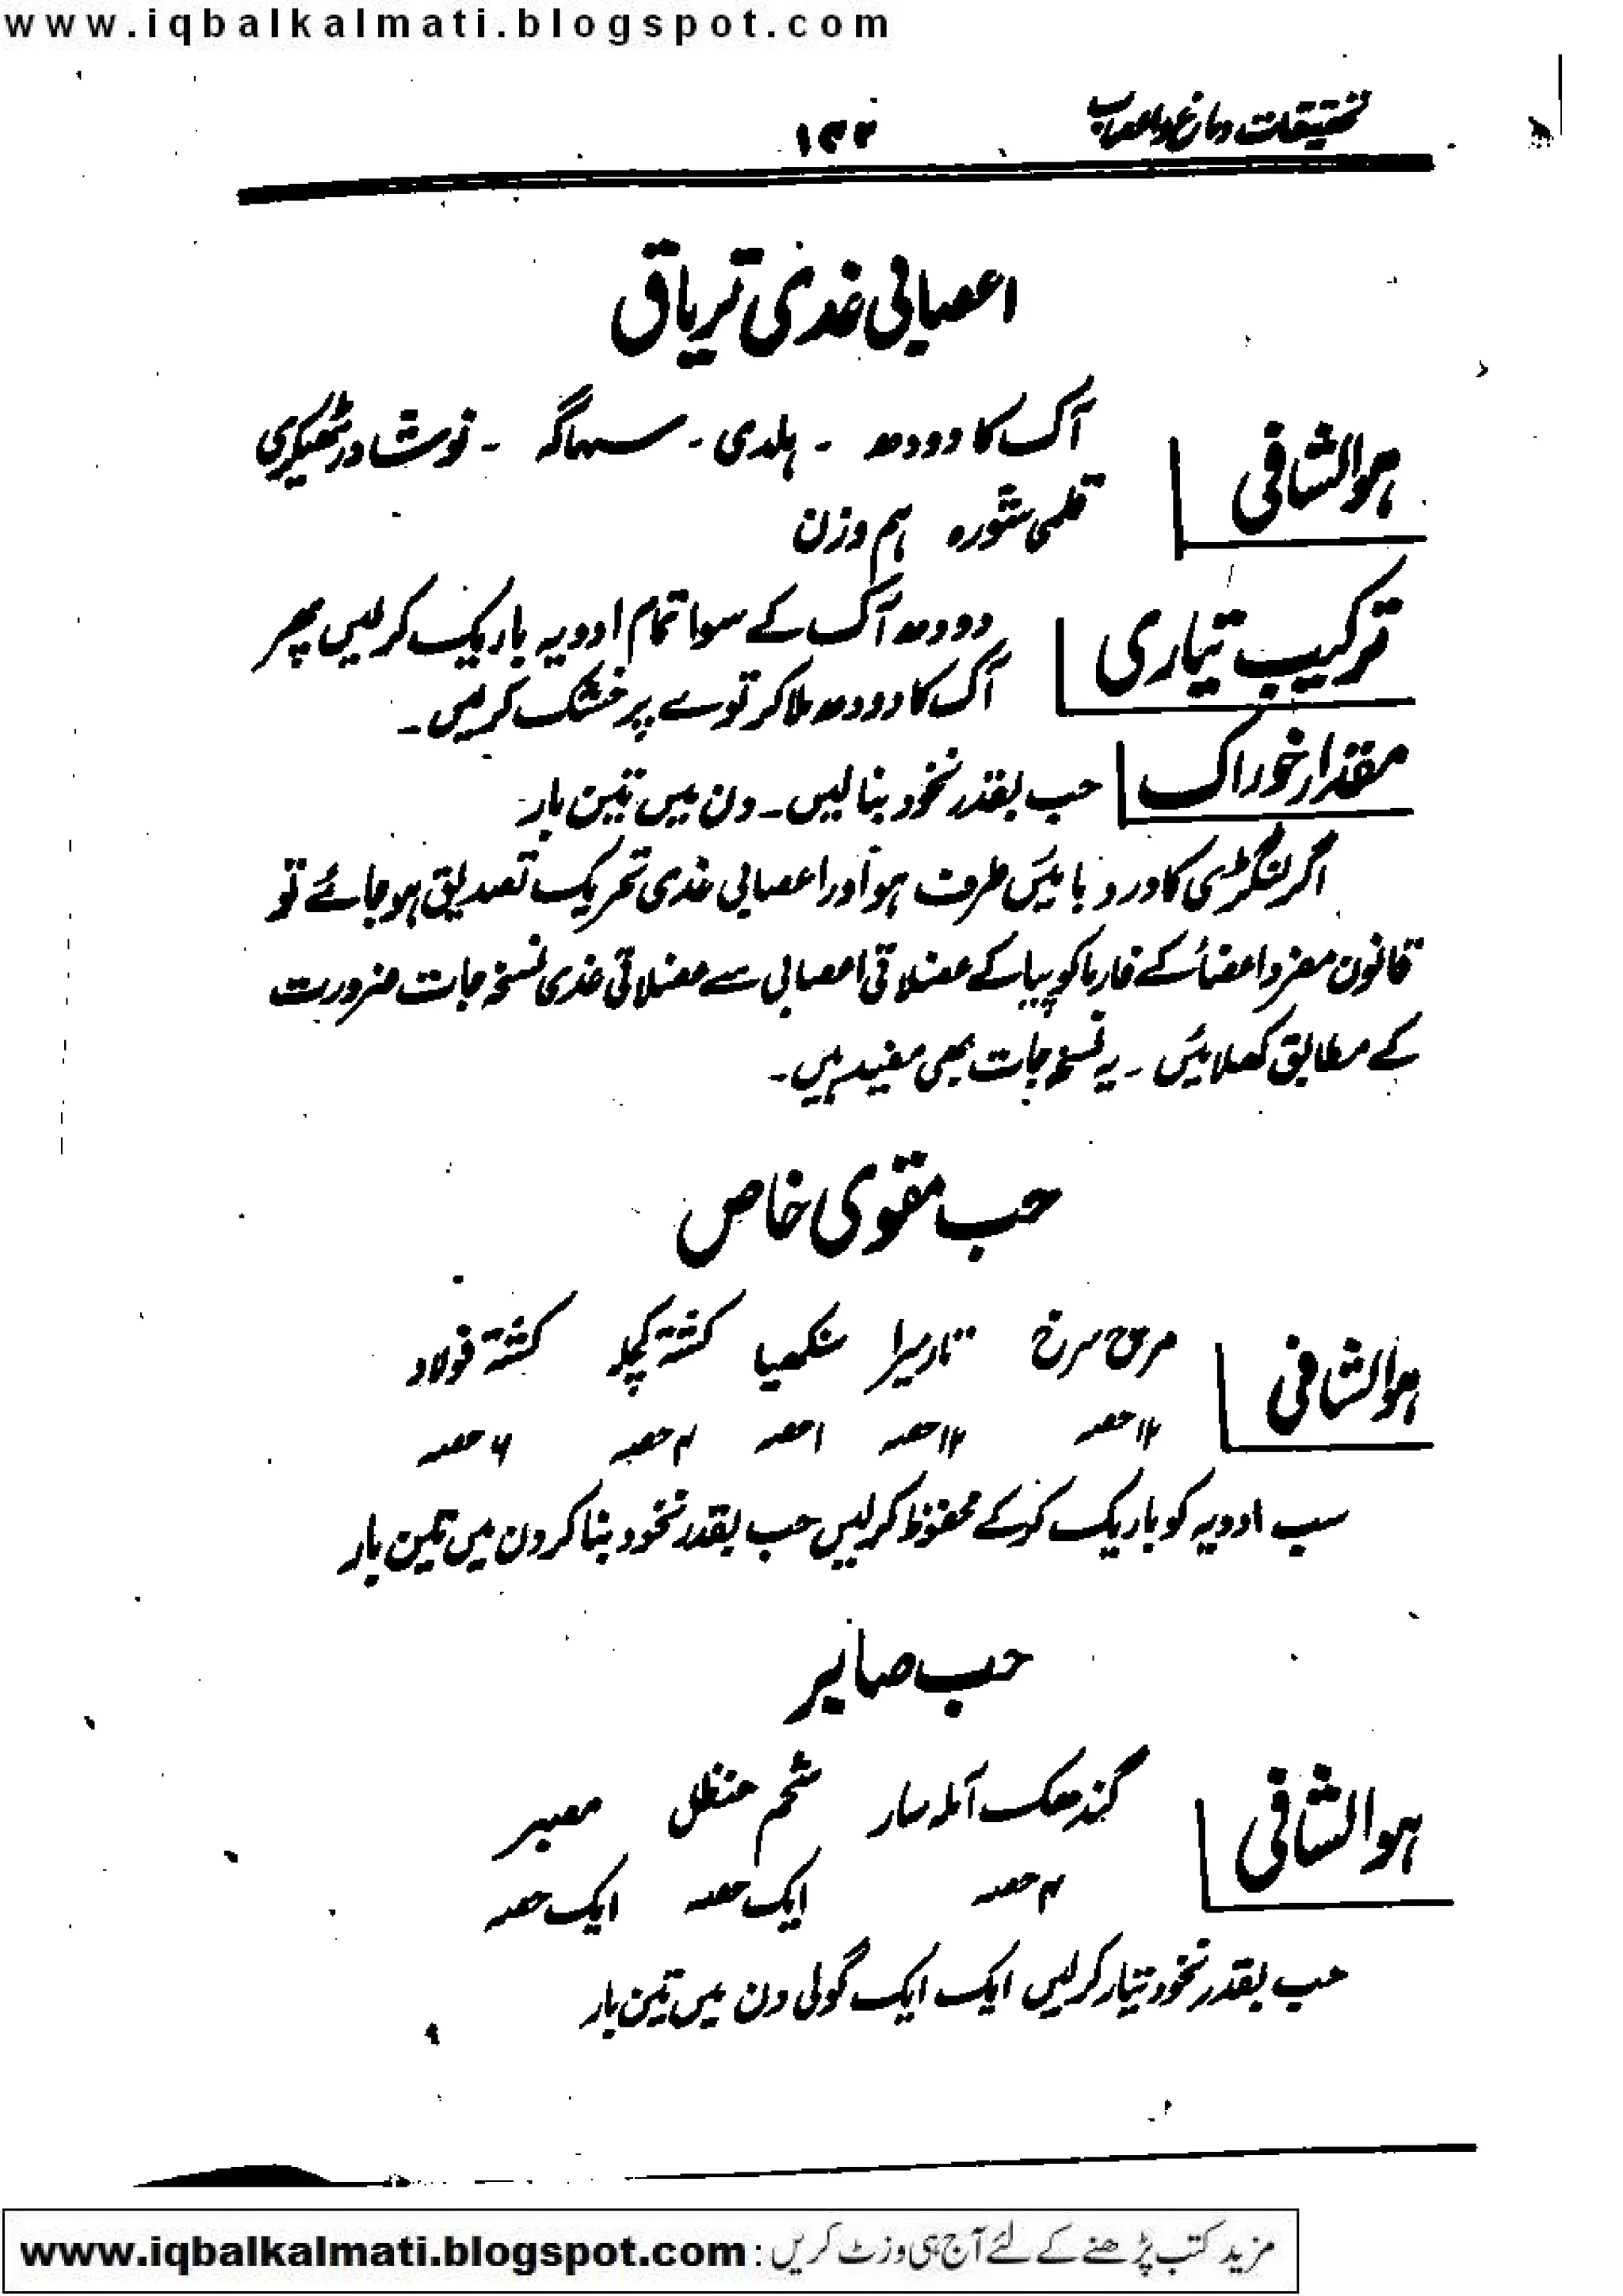 www.iqbalkalmati.blogspot.com
تحقیقات دماغ و اعصاب ۱۳۲
اعصابی غدی تریاق
ہوالشافی آک کا دودھ ۔ ہلدی ۔ سہاگہ ۔ نوشادر ٹھیکری
قلمی شورہ ہم وزن
ترکیب تیاری دودھ آک کے سوا تمام ادویہ باریک کرلیں پھر
آک کا دودھ ملا کر توے پر خشک کریں۔
مقدار خوراک حب بقدر نخود بنالیں۔ دن میں تین بار
اگر لنگڑی کا درد بائیں طرف ہو اور اعصابی غدی تحریک تصدیق ہو جائے تو
قانون مفرد اعضائے کے فارماکوپیا کے عضلاتی اعصابی سے عضلاتی غدی نسخہ جات ضرورت
کے مطابق کھلائیں ۔ یہ نسخہ جات بھی مفید ہیں۔
حب مقوی خاص
ہوالشافی مرچ سرخ تارمیرا سنکھیا کشتہ کچلہ کشتہ فولاد
۱۲ حصہ ۱۲ حصہ ۱ حصہ ۴ حصہ ۶ حصہ
سب ادویہ کو باریک کرکے محفوظ کرلیں حب بقدر نخود بنا کر دن میں تین بار
حب صابر
ہوالشافی گندھک آملہ سار شحم حنظل مصبر
۴ حصہ ایک حصہ ایک حصہ
حب بقدر نخود تیار کرلیں ایک ایک گولی دن میں تین بار
مزید کتب پڑھنے کے لئے آج ہی وزٹ کریں : www.iqbalkalmati.blogspot.com